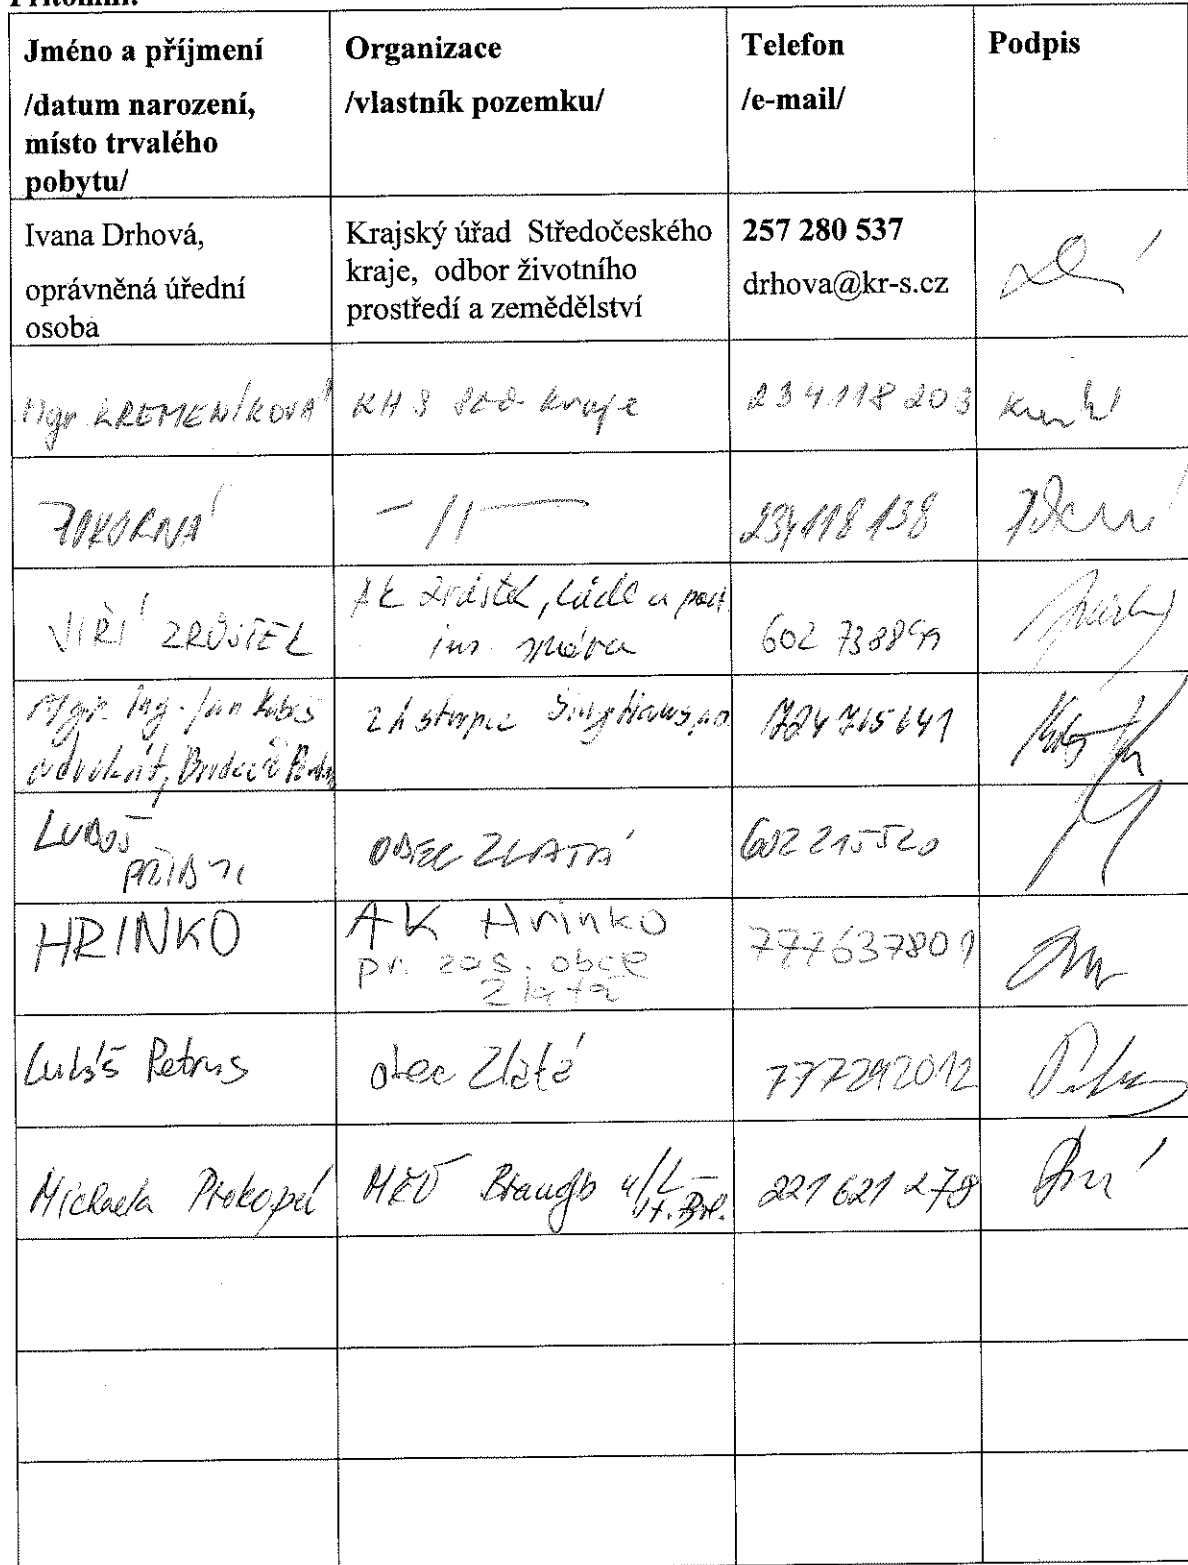 Přítomni:
Jméno a příjmení
/datum narození,
místo trvalého
pobytu/
Organizace
/vlastník pozemku/
Telefon
/e-mail/
Podpis
Ivana Drhová,
oprávněná úřední
osoba
Krajský úřad Středočeského
kraje, odbor životního
prostředí a zemědělství
257 280 537
drhova@kr-s.cz
Mgr KREMENÍKOVÁ
KHS Stč. kraje
234118203
POKORNÁ
- 11 -
234118138
JIŘÍ ZRŮSTEK
AK Zrůstek, Lůdl a part.
ins. správce
602 738899
Mgr. Ing. Jan
advokát,
zástupce
724 765 641
LUBOŠ
PŘIBYL
OBEC ZLATÁ
602215520
HRINKO
AK Hrinko
pr. zás. obce
Zlatá
777637801
Lukáš Petrus
obec Zlatá
777292012
Michaela
MěÚ
221 621 278